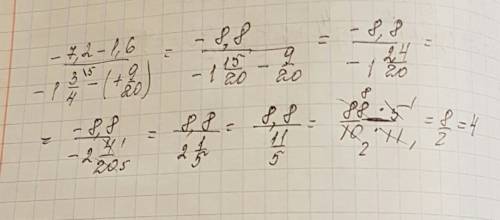 (-7,2-1,6)/(-1 3/4 ¹⁵ - (+ 9/20)) = (-8,8)/(-1 15/20 - 9/20) = (-8,8)/(-1 24/20) =
= (-8,8)/(-2 4¹/20₅) = 8,8/(2 1/5) = 8,8/(11/5) = (88⁸ · 5¹)/(10₂ · 11₁) = 8/2 = 4